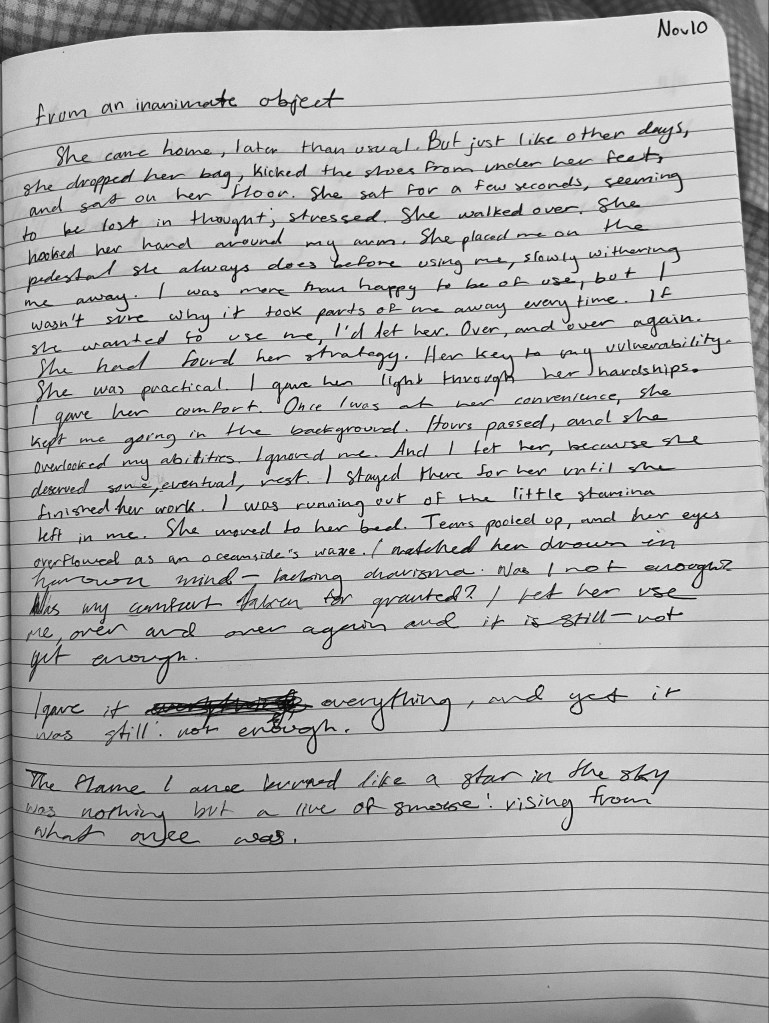 Nov 10
from an inanimate object
She came home, later than usual. But just like other days,
she dropped her bag, kicked the shoes from under her feet,
and sat on her floor. She sat for a few seconds, seeming
to be lost in thought; stressed. She walked over. She
hooked her hand around my arm. She placed me on the
pedestal she always does before using me, slowly withering
me away. I was more than happy to be of use, but I
wasn't sure why it took parts of me away every time. If
she wanted to use me, I'd let her. Over, and over again.
She had found her strategy. Her key to my vulnerability.
She was practical. I gave her light through her hardships.
I gave her comfort. Once I was at her convenience, she
kept me going in the background. Hours passed, and she
overlooked my abilities. Ignored me. And I let her, because she
deserved some, eventual, rest. I stayed there for her until she
finished her work. I was running out of the little stamina
left in me. She moved to her bed. Tears pooled up, and her eyes
overflowed as an oceanside's wave. I watched her drown in
her own mind – lacking charisma. Was I not enough?
Was my comfort taken for granted? I let her use
me, over and over again and it is still – not
yet enough.
I gave it everything, and yet it
was still. not enough.
The flame I once burned like a star in the sky
was nothing but a line of smoke. rising from
what once was.